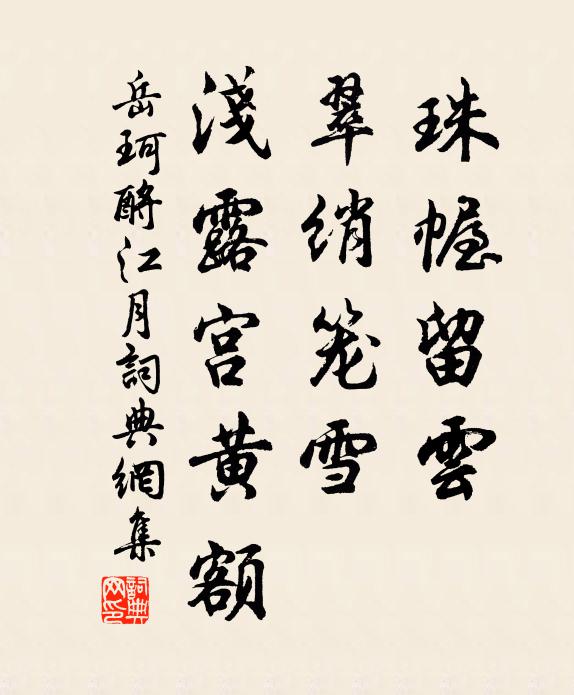 珠幄留雲
翠绡笼雪
淺露宫黄額
岳珂酹江月詞典網集
詞典網印